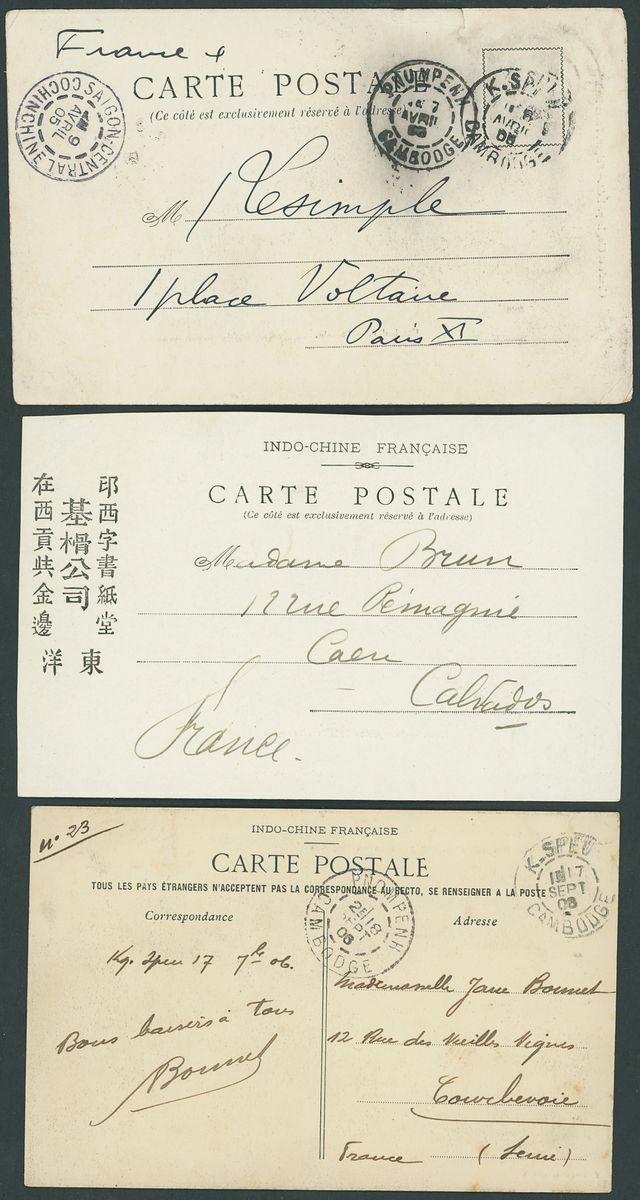 France
CARTE POSTALE
(Ce côté est exclusivement réservé à l'adresse)
SAIGON-CENTRAL
9
AVRIL
05
COCHINCHINE
PNUMPENH
7
AVRIL
CAMBODGE
K.SPEU
AVRIL
05
CAMBODGE
M Lesimple
1 place Voltaire
Paris XI
INDO-CHINE FRANÇAISE
CARTE POSTALE
(Ce côté est exclusivement réservé à l'adresse)
印西字書紙堂
基楿公司
在西貢㒷金邊
東洋
Madame Brun
12 rue Pémagnie
Caen
Calvados
France.
nº 23
INDO-CHINE FRANÇAISE
CARTE POSTALE
TOUS LES PAYS ÉTRANGERS N'ACCEPTENT PAS LA CORRESPONDANCE AU RECTO, SE RENSEIGNER A LA POSTE
K.SPEU
17
SEPT
06
CAMBODGE
PNOMPENH
18
SEPT
06
CAMBODGE
Correspondance
Kg. Speu 17 7bre 06.
Bons baisers à tous
Bonnet
Adresse
Mademoiselle Jane Bonnet
12 Rue des Vieilles Vignes
Courbevoie
France (Seine)